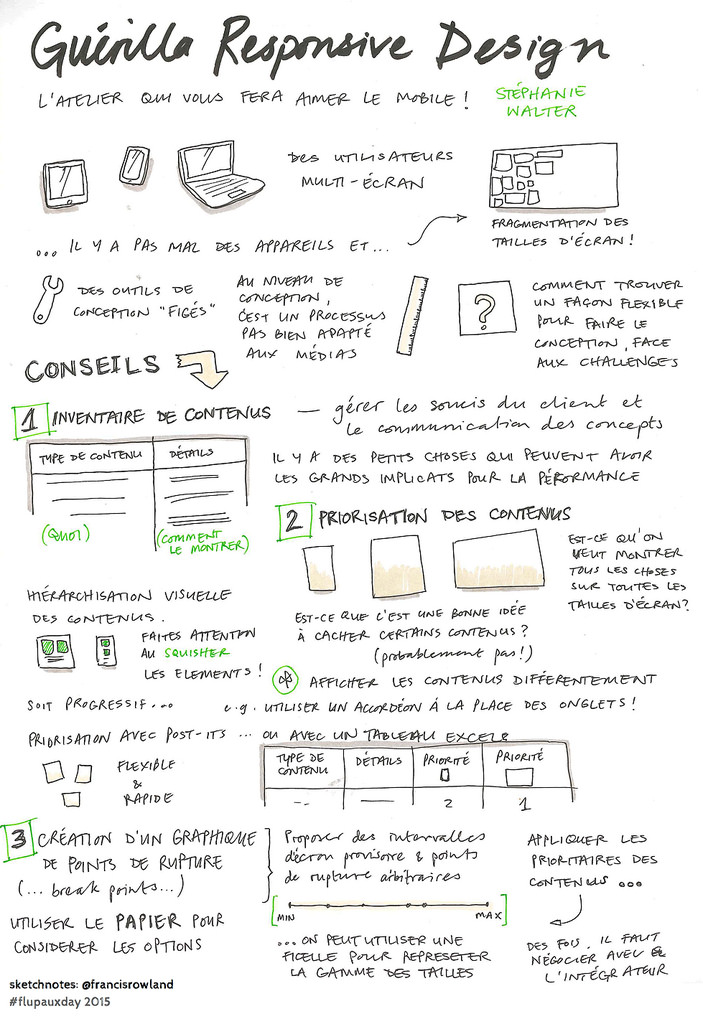 Guérilla Responsive Design
L'ATELIER QUI VOUS FERA AIMER LE MOBILE !
STÉPHANIE
WALTER
DES UTILISATEURS
MULTI-ÉCRAN
FRAGMENTATION DES
TAILLES D'ÉCRAN !
... IL Y A PAS MAL DES APPAREILS ET...
DES OUTILS DE
CONCEPTION "FIGÉS"
AU NIVEAU DE
CONCEPTION,
C'EST UN PROCESSUS
PAS BIEN ADAPTÉ
AUX MÉDIAS
?
COMMENT TROUVER
UN FAÇON FLEXIBLE
POUR FAIRE LE
CONCEPTION, FACE
AUX CHALLENGES
CONSEILS
1 INVENTAIRE DE CONTENUS — gérer les soucis du client et
le communication des concepts
TYPE DE CONTENU
DÉTAILS
(QUOI)
(COMMENT
LE MONTRER)
IL Y A DES PETITS CHOSES QUI PEUVENT AVOIR
LES GRANDS IMPLICATS POUR LA PÉRFORMANCE
2 PRIORISATION DES CONTENUS
EST-CE QU'ON
VEUT MONTRER
TOUS LES CHOSES
SUR TOUTES LES
TAILLES D'ÉCRAN?
EST-CE QUE C'EST UNE BONNE IDÉE
À CACHER CERTAINS CONTENUS ?
(probablement pas!)
HIÉRARCHISATION VISUELLE
DES CONTENUS.
FAITES ATTENTION
AU SQUISHER
LES ELEMENTS !
OR AFFICHER LES CONTENUS DIFFÉREMMENT
SOIT PROGRESSIF...
e.g. UTILISER UN ACCORDÉON À LA PLACE DES ONGLETS !
PRIORISATION AVEC POST-ITS ... OU AVEC UN TABLEAU EXCEL
FLEXIBLE
&
RAPIDE
TYPE DE
CONTENU
DÉTAILS
PRIORITÉ
PRIORITÉ
2
1
3 CRÉATION D'UN GRAPHIQUE
DE POINTS DE RUPTURE
(... break points...)
UTILISER LE PAPIER POUR
CONSIDERER LES OPTIONS
Proposer des intervalles
d'écran provisoire & points
de rupture arbitraires
MIN
MAX
...ON PEUT UTILISER UNE
FICELLE POUR REPRESETER
LA GAMME DES TAILLES
APPLIQUER LES
PRIORITAIRES DES
CONTENUS ...
DES FOIS, IL FAUT
NÉGOCIER AVEC
L'INTÉGRATEUR
sketchnotes: @francisrowland
#flupauxday 2015